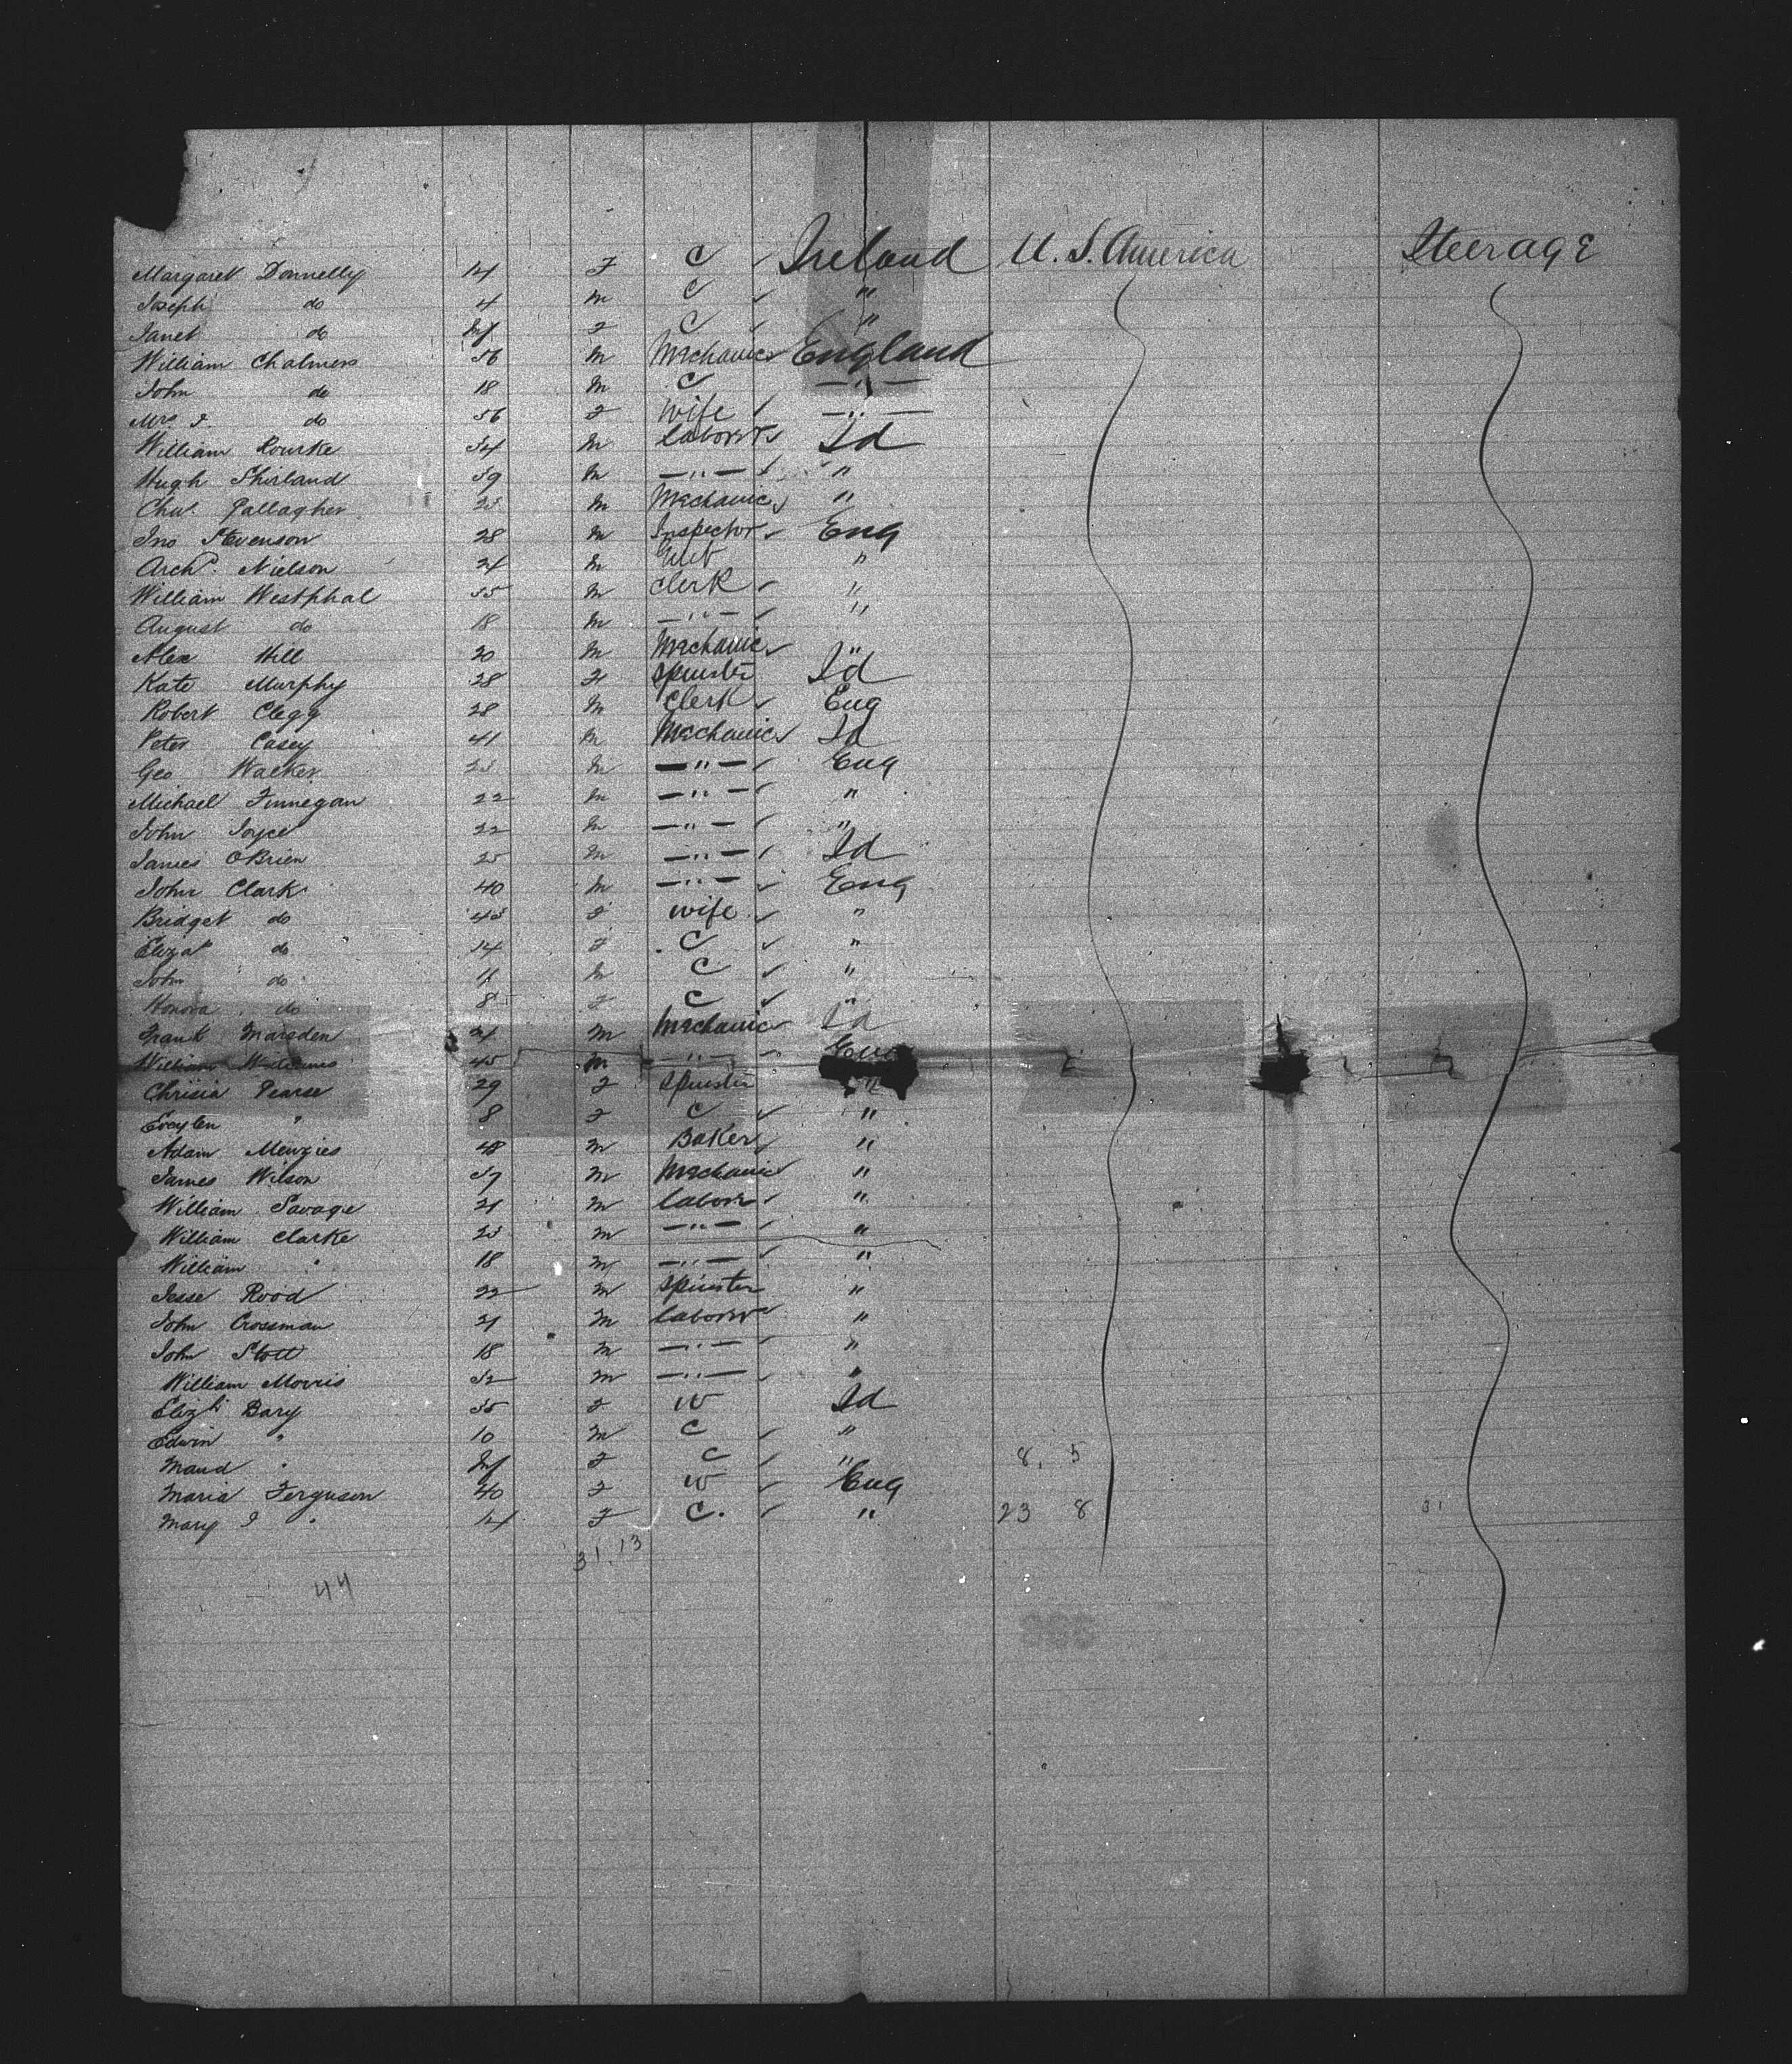 Margaret Donnelly 14 F C Ireland U.S. America Steerage
Joseph do 4 M C "
Janet do Inf F C "
William Chalmers 56 M Mechanic England
John do 18 M C — " —
Mrs. J. do 56 F Wife — " —
William Rourke 34 M Laborer Id
Hugh Shirland 39 M — " — "
Chas. Gallagher 23 M Mechanic "
Jno Stevenson 28 M Inspector Eng
Archd. Nielson 24 M Gent "
William Westphal 35 M Clerk "
August do 18 M — " — "
Alex Hill 20 M Mechanic "
Kate Murphy 28 F Spinster Id
Robert Clegg 28 M Clerk Eng
Peter Casey 41 M Mechanic Id
Geo Walker 23 M — " — Eng
Michael Finnegan 22 M — " — "
John Joyce 22 M — " — "
James OBrien 25 M — " — Id
John Clark 40 M — " — Eng
Bridget do 43 F Wife "
Eliza do 14 F C "
John do 11 M C "
Honora do 8 F C "
Frank Marsden 24 M Mechanic Id
William Williams 45 M — " — Eng
Chrisia Pearse 29 F Spinster "
Eveylen " 8 F C "
Adam Menzies 48 M Baker "
James Wilson 37 M Mechanic "
William Savage 21 M Labour "
William Clarke 23 M — " — "
William " 18 M — " — "
Jesse Rood 22 M Spinster "
John Crossman 21 M Laborer "
John Stott 18 M — " — "
William Morris 32 M — " — "
Elizth. Bary 35 F W Id
Edwin " 10 M C "
Maud " Inf F C " 8. 5
Maria Ferguson 40 F W Eng
Mary J " 14 F C. " 23 8 31
31.13
44